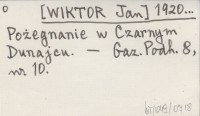 [WIKTOR Jan] 1920...
Pożegnanie w Czarnym
Dunajcu. — Gaz. Podh. 8,
nr 10.